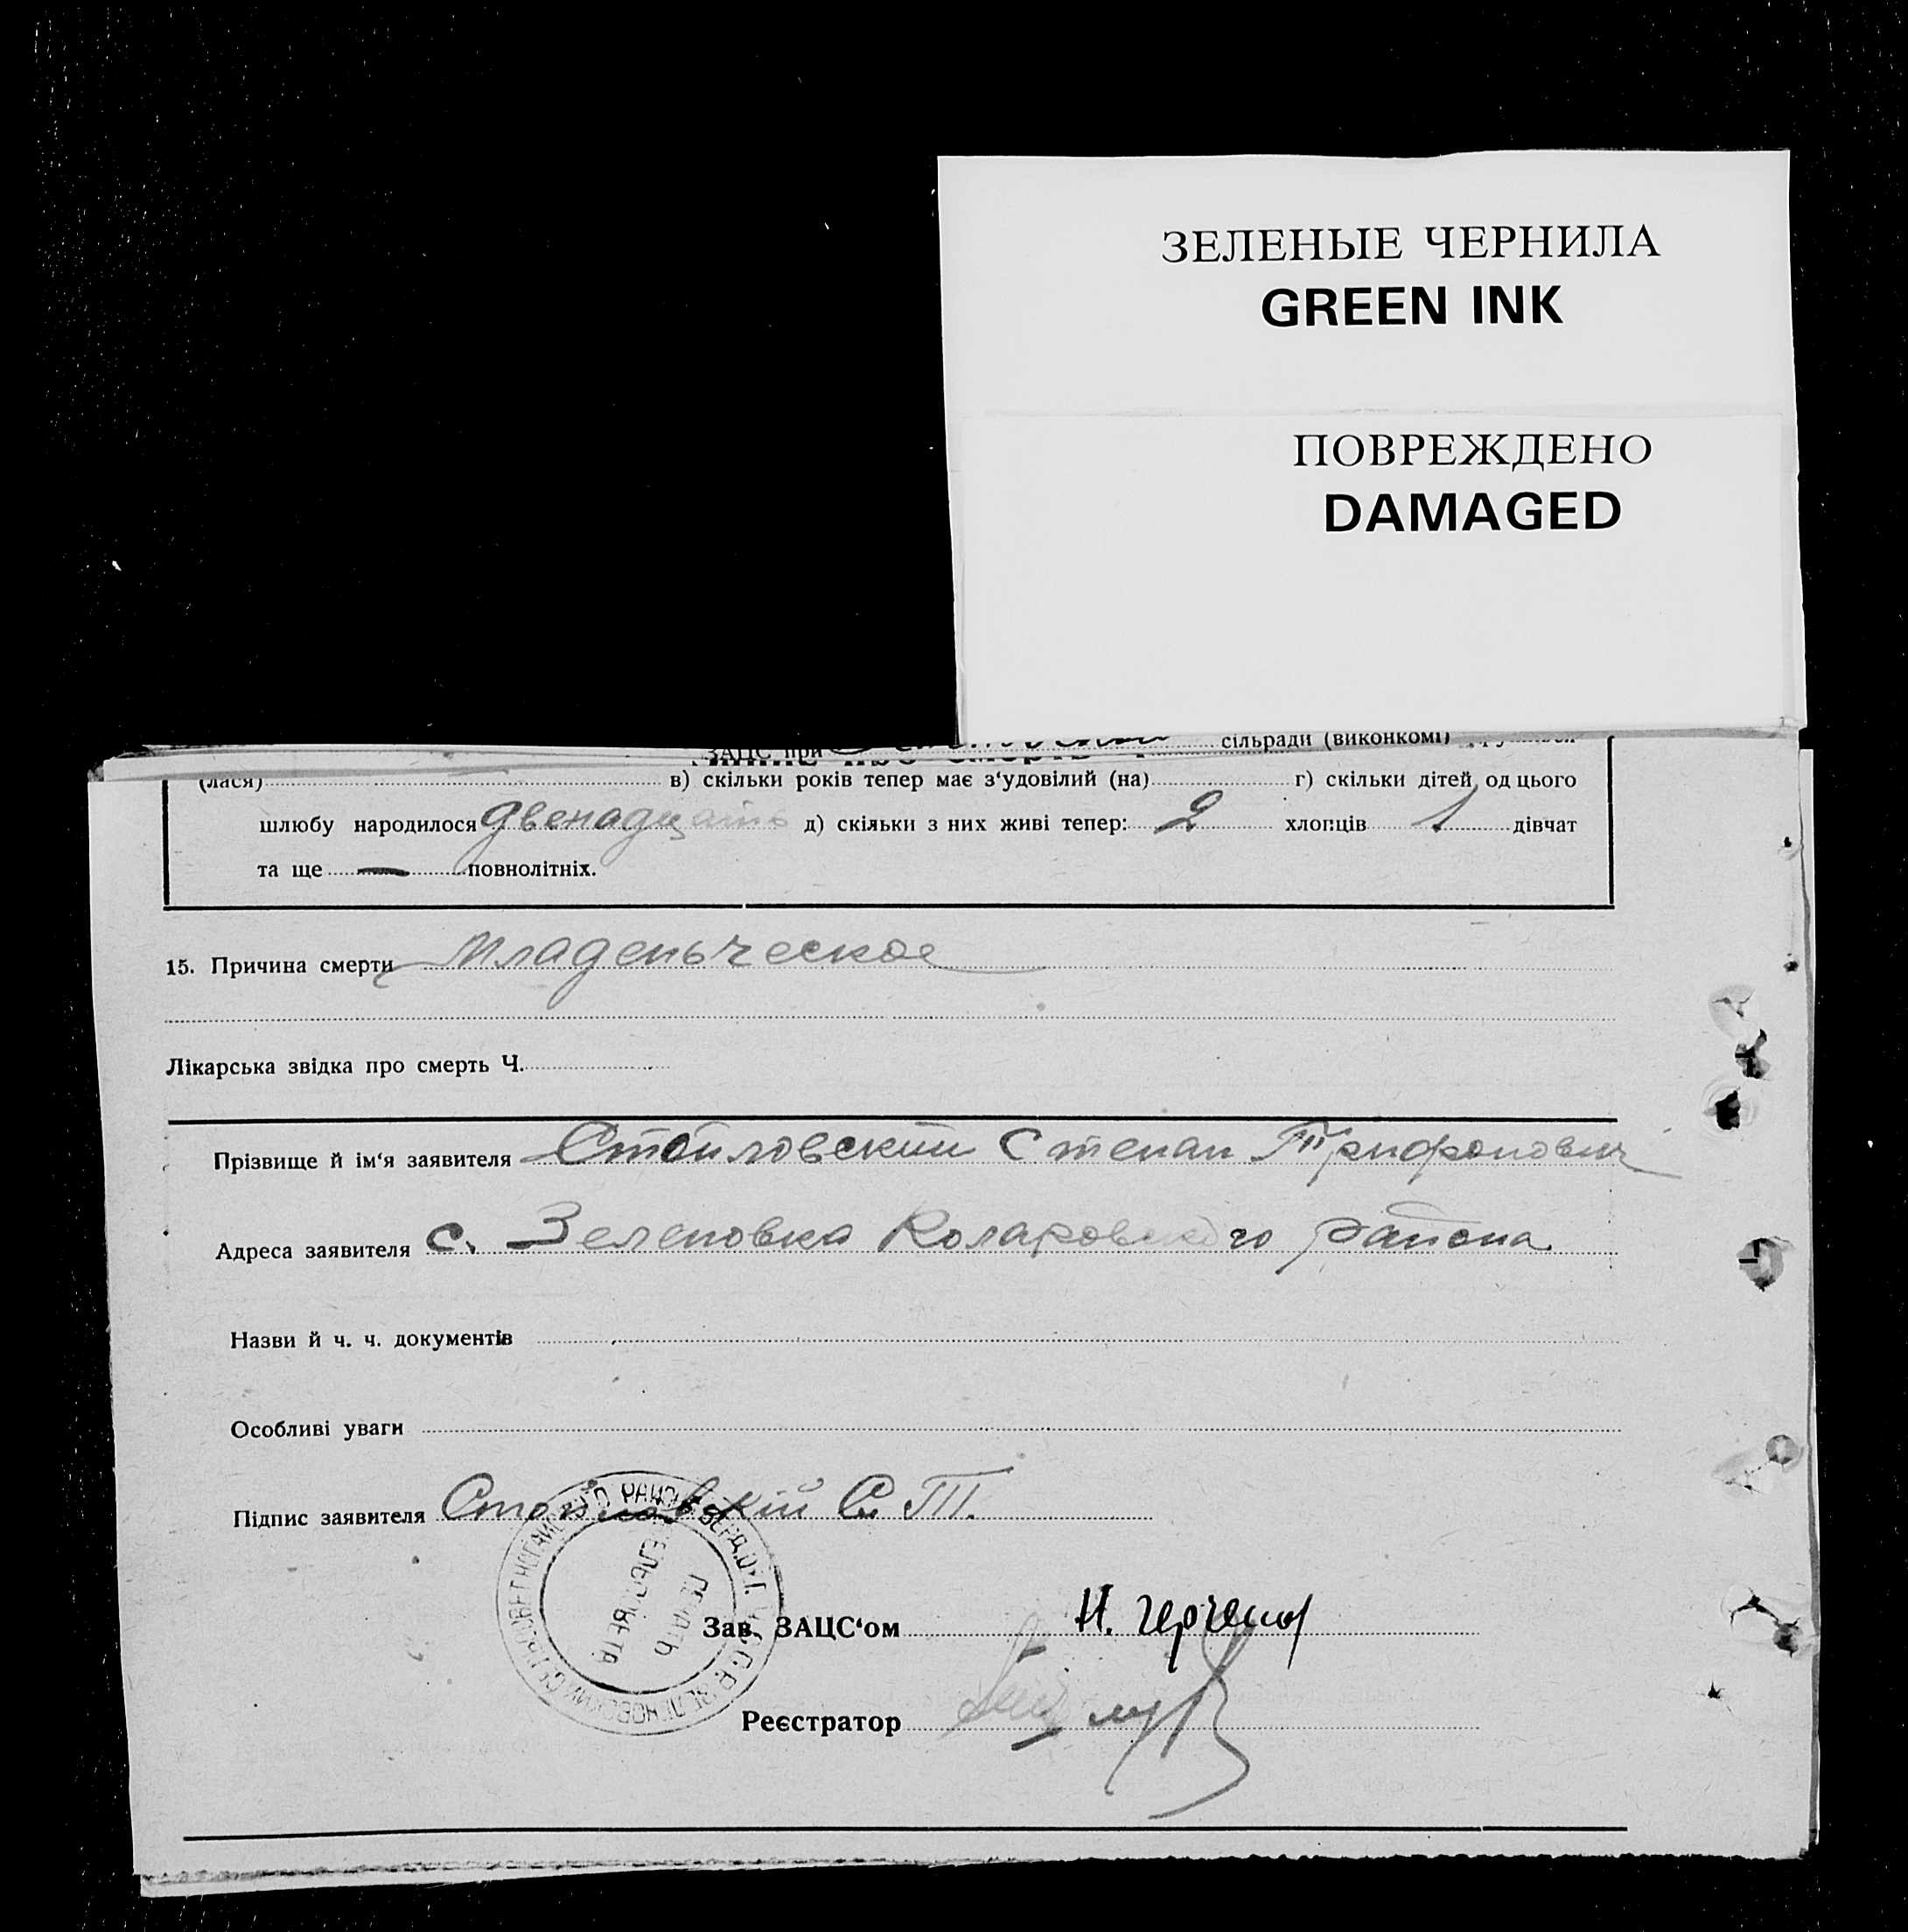 ЗЕЛЕНЫЕ ЧЕРНИЛА
GREEN INK
ПОВРЕЖДЕНО
DAMAGED
ЗАЦС при сільради (виконкомі)
(лася) в) скільки років тепер має з‘удовілий (на) г) скільки дітей од цього
шлюбу народилося двенадцать д) скільки з них живі тепер: 2 хлопців 1 дівчат
та ще — повнолітніх.
15. Причина смерти Младеньческое
Лікарська звідка про смерть Ч.
Прізвище й ім‘я заявителя Стоиловский Степан Трифонович
Адреса заявителя с. Зеленовка Коларовского района
Назви й ч. ч. документів
Особливі уваги
Підпис заявителя Стоиловскій С. Т.
ПЕЧАТЬ
СЕЛЬСОВЕТА
Зав. ЗАЦС‘ом Н.
Реєстратор